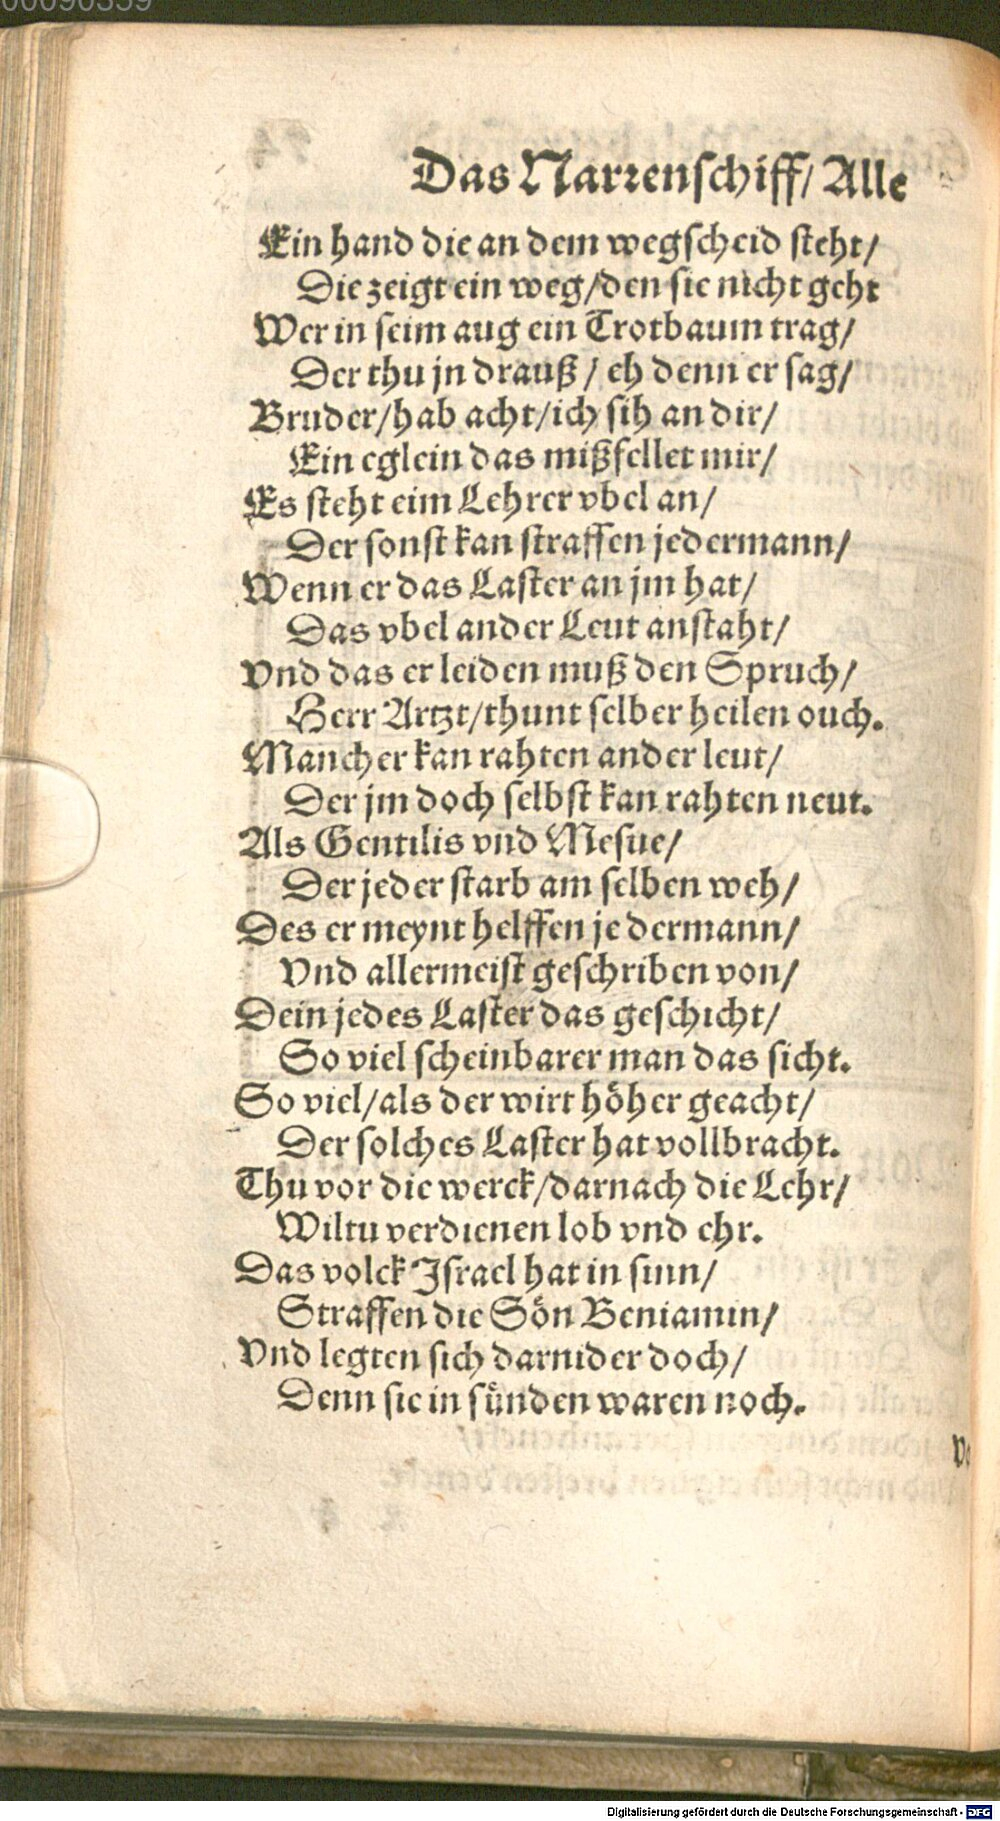 00090359
Das Narrenschiff/ Alle
Ein hand die an dem wegscheid steht/
Die zeigt ein weg/den sie nicht geht
Wer in seim aug ein Trotbaum trag/
Der thu jn drauß/ eh denn er sag/
Bruder/hab acht/ich sih an dir/
Ein eglein das mißfellet mir/
Es steht eim Lehrer vbel an/
Der sonst kan straffen jedermann/
Wenn er das Laster an jm hat/
Das vbel ander Leut anstaht/
Vnd das er leiden muß den Spruch/
Herr Artzt/thunt selber heilen ouch.
Mancher kan rahten ander leut/
Der jm doch selbst kan rahten neut.
Als Gentilis vnd Mesue/
Der jeder starb am selben weh/
Des er meynt helffen jedermann/
Vnd allermeist geschriben von/
Dein jedes Laster das geschicht/
So viel scheinbarer man das sicht.
So viel/als der wirt höher geacht/
Der solches Laster hat vollbracht.
Thu vor die werck/darnach die Lehr/
Wiltu verdienen lob vnd ehr.
Das volck Israel hat in sinn/
Straffen die Sön Beniamin/
Vnd legten sich darnider doch/
Denn sie in sünden waren noch.
Digitalisierung gefördert durch die Deutsche Forschungsgemeinschaft - DFG